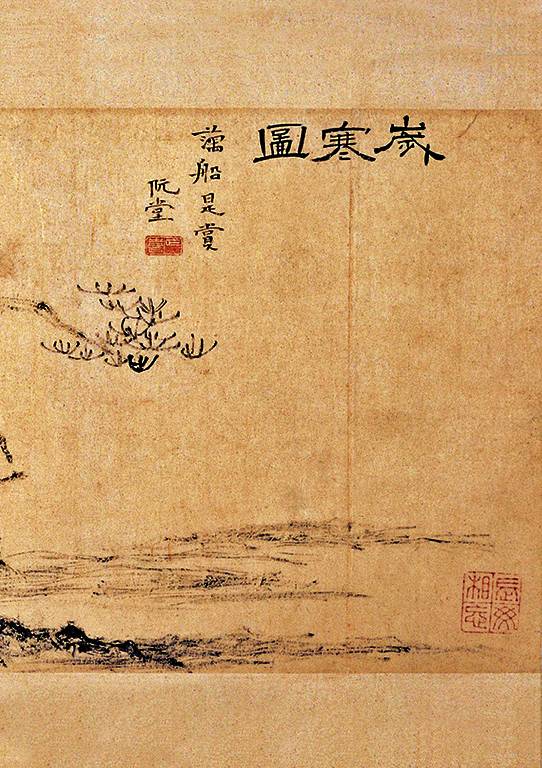 歲寒圖
藕船是賞
阮堂
長毋相忘